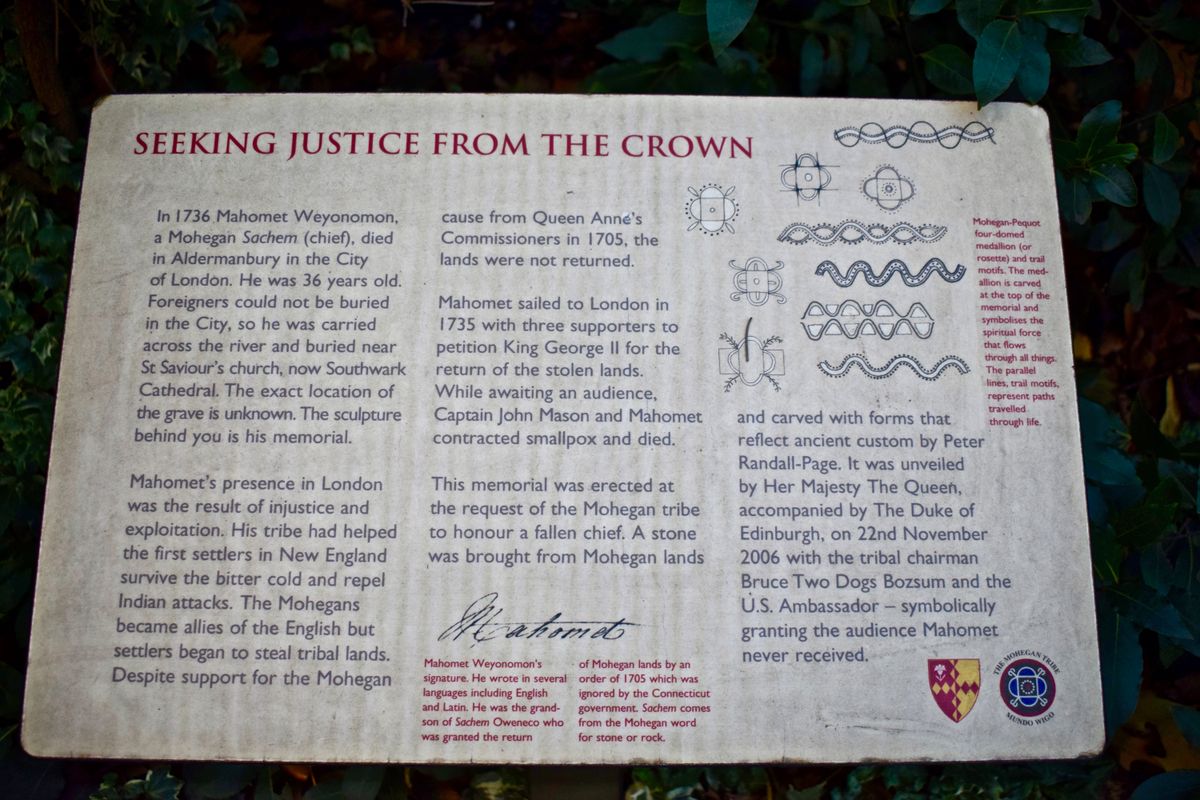 SEEKING JUSTICE FROM THE CROWN
In 1736 Mahomet Weyonomon,
a Mohegan Sachem (chief), died
in Aldermanbury in the City
of London. He was 36 years old.
Foreigners could not be buried
in the City, so he was carried
across the river and buried near
St Saviour's church, now Southwark
Cathedral. The exact location of
the grave is unknown. The sculpture
behind you is his memorial.
Mahomet's presence in London
was the result of injustice and
exploitation. His tribe had helped
the first settlers in New England
survive the bitter cold and repel
Indian attacks. The Mohegans
became allies of the English but
settlers began to steal tribal lands.
Despite support for the Mohegan
cause from Queen Anne's
Commissioners in 1705, the
lands were not returned.
Mahomet sailed to London in
1735 with three supporters to
petition King George II for the
return of the stolen lands.
While awaiting an audience,
Captain John Mason and Mahomet
contracted smallpox and died.
This memorial was erected at
the request of the Mohegan tribe
to honour a fallen chief. A stone
was brought from Mohegan lands
and carved with forms that
reflect ancient custom by Peter
Randall-Page. It was unveiled
by Her Majesty The Queen,
accompanied by The Duke of
Edinburgh, on 22nd November
2006 with the tribal chairman
Bruce Two Dogs Bozsum and the
U.S. Ambassador – symbolically
granting the audience Mahomet
never received.
Mohegan-Pequot
four-domed
medallion (or
rosette) and trail
motifs. The med-
allion is carved
at the top of the
memorial and
symbolises the
spiritual force
that flows
through all things.
The parallel
lines, trail motifs,
represent paths
travelled
through life.
Mahomet
Mahomet Weyonomon's
signature. He wrote in several
languages including English
and Latin. He was the grand-
son of Sachem Oweneco who
was granted the return
of Mohegan lands by an
order of 1705 which was
ignored by the Connecticut
government. Sachem comes
from the Mohegan word
for stone or rock.
THE MOHEGAN TRIBE
MUNDO WIGO